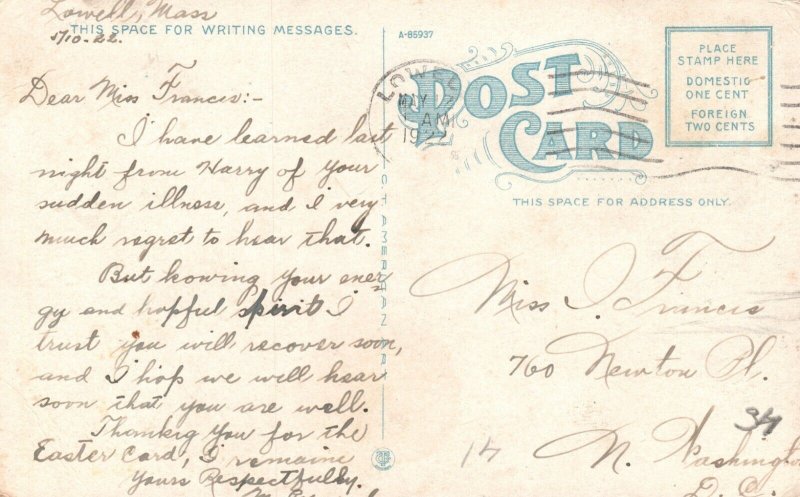 Lowell, Mass
THIS SPACE FOR WRITING MESSAGES.
5/10-22.
Dear Miss Francis:-
I have learned last
night from Harry of your
sudden illness, and I very
much regret to hear that.
But kowing your ener-
gy and hopful spirit I
trust you will recover soon,
and I hop we will hear
soon that you are well.
Thanking you for the
Easter Card, I remaine
Yours Respectfully.
A-85937
POST
CARD
LOWELL
MAY
AM
1922
PLACE
STAMP HERE
DOMESTIC
ONE CENT
FOREIGN
TWO CENTS
THIS SPACE FOR ADDRESS ONLY.
Miss I. Francis
760 Newton Pl.
34
14
N. Washington
D.C.